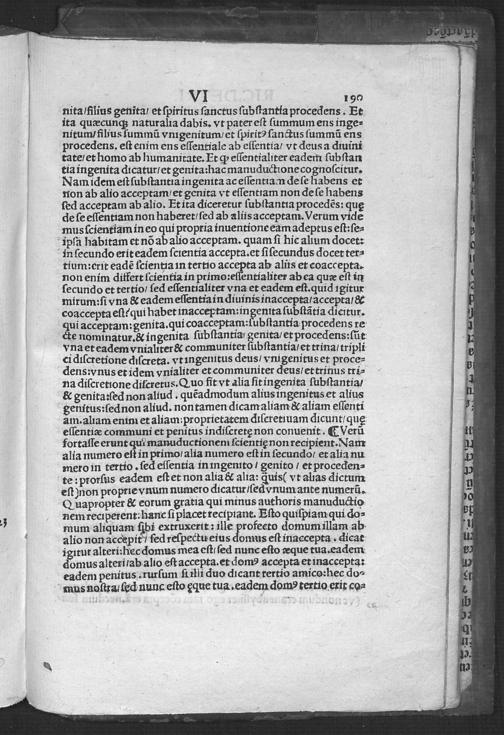 VI 190
nita/filius genita/ et spiritus sanctus substantia procedens. Et
ita quæcunq; naturalia dabis. vt pater est summum ens inge-
nitum/filius summū vnigenitum/ et spirit⁹ sanctus summū ens
procedens. est enim ens essentiale ab essentia/ vt deus a diuini
tate/et homo ab humanitate. Et ꝙ essentialiter eadem substan
tia ingenita dicatur/et genita:hac manuductione cognoscitur.
Nam idem est substantia ingenita ac essentiam de se habens et
non ab alio acceptam/et genita vt essentiam non de se habens
sed acceptam ab alio. Et ita diceretur substantia procedēs: que
de se essentiam non haberet/sed ab aliis acceptam. Verum vide
mus scientiam in eo qui propria inuentione eam adeptus est:se-
ipsā habitam et nō ab alio acceptam. quam si hic alium docet:
in secundo erit eadem scientia accepta. et si secundus docet ter-
tium:erit eadē scientia in tertio accepta ab aliis et coaccepta.
non enim differt scientia in primo:essentialiter ab ea quæ est in
secundo et tertio/ sed essentialiter vna et eadem est. quid igitur
mirum:si vna & eadem essentia in diuinis inaccepta/accepta/&
coaccepta est? qui habet inacceptam:ingenita substātia dicitur.
qui acceptam:genita. qui coacceptam:substantia procedens re
cte nominatur. & ingenita substantia/ genita/ et procedens:sūt
vna et eadem vnialiter & communiter substantia/ et trina/ tripli
ci discretione discreta. vt ingenitus deus/ vnigenitus et proce-
dens:vnus et idem vnialiter et communiter deus/ et trinus tri-
na discretione discretus. Quo fit vt alia sit ingenita substantia/
& genita:sed non aliud. quēadmodum alius ingenitus et alius
genitus:sed non aliud. non tamen dicam aliam & aliam essenti
am. aliam enim et aliam: proprietatem discretiuam dicunt/que
essentiæ communi et penitus indiscretę non conuenit. ¶ Verū
fortasse erunt qui manuductionem scientię non recipient. Nam
alia numero est in primo/ alia numero est in secundo/ et alia nu
mero in tertio. sed essentia in ingenito/ genito/ et proceden-
te: prorsus eadem est et non alia & alia: quis( vt alias dictum
est)non proprie vnum numero dicatur/sed vnum ante numerū.
Quapropter & eorum gratia qui minus authoris manuductio
nem reciperent: hanc si placet recipiant. Esto quispiam qui do-
mum aliquam sibi extruxerit: ille profecto domum illam ab
alio non accepit/ sed respectu eius domus est inaccepta. dicat
igitur alteri:hec domus mea est/ sed nunc esto æque tua. eadem
domus alteri/ab alio est accepta. et dom⁹ accepta et inaccepta:
eadem penitus. rursum si illi duo dicant tertio amico: hec do-
mus nostra/ sed nunc esto ęque tua. eadem dom⁹ tertio erit co-